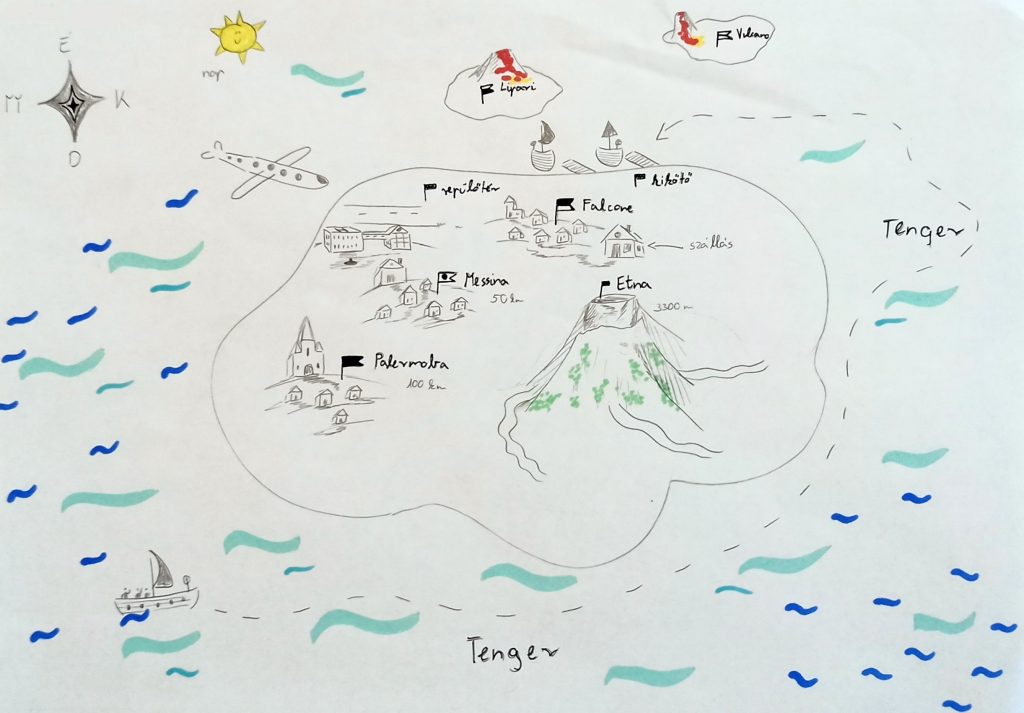 É
NY
K
D
nap
Lipari
Vulcano
repülőtér
kikötő
Falcone
szállás
Tenger
Messina
50 km
Etna
3300 m
Palermoba
100 km
Tenger